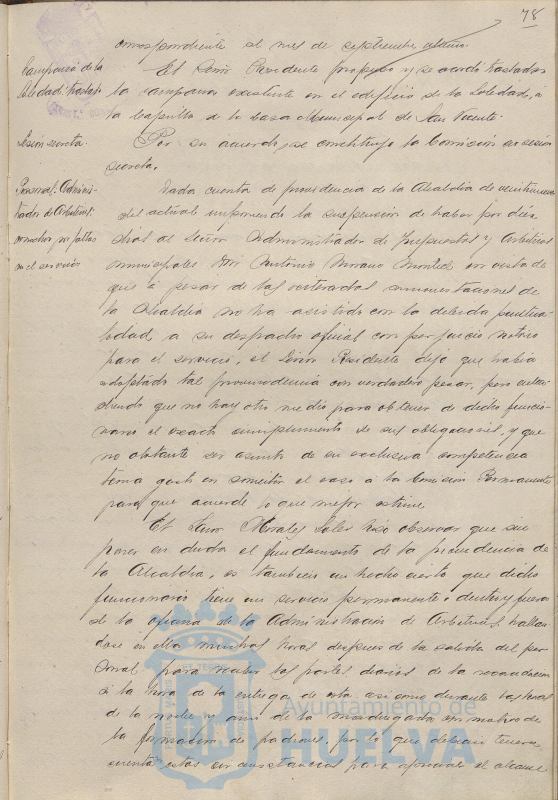 78
correspondiente al mes de septiembre último.
Campana de la
Soledad: traslado
El Señor Presidente propuso y se acordó trasladar
la campana existente en el edificio de la Soledad, a
la Capilla de la Casa Municipal de San Vicente.
Sesión secreta.
Por su acuerdo, se constituyó la Comisión en sesión
secreta.
Personal: Adminis-
trador de Arbitrios:
por faltas
en el servicio
Dada cuenta de providencia de la Alcaldía de
del actual imponiendo la suspensión de haber por diez
días al Señor Administrador de Impuestos y Arbitrios
municipales Don Antonio Moreno en vista de
que a pesar de las reiteradas amonestaciones de
la Alcaldía no ha asistido con la debida puntua-
lidad a su despacho oficial con perjuicio notorio
para el servicio, el Señor Presidente dijo que había
adoptado tal providencia con verdadero pesar, pero enten-
diendo que no hay otro medio para obtener de dicho funcio-
nario el exacto cumplimiento de sus obligaciones, y que
no obstante ser asunto de su exclusiva competencia
tenía gusto en someter el caso a la Comisión Permanente
para que acuerde lo que mejor estime.
El Señor Morales Soler hizo observar que sin
poner en duda el fundamento de la providencia de
la Alcaldía, es también un hecho cierto que dicho
funcionario tiene un servicio permanente dentro y fuera
de la oficina de la Administración de Arbitrios, hallán-
dose en ella muchas horas después de la salida del per-
sonal para recibir los partes diarios de la recaudación
a la hora de la entrega de esta así como durante las horas
de la noche y aun de la madrugada con motivo de
la formación de padrones, por lo que debían tenerse en
cuenta estas circunstancias para apreciar el alcance
Ayuntamiento de
HUELVA